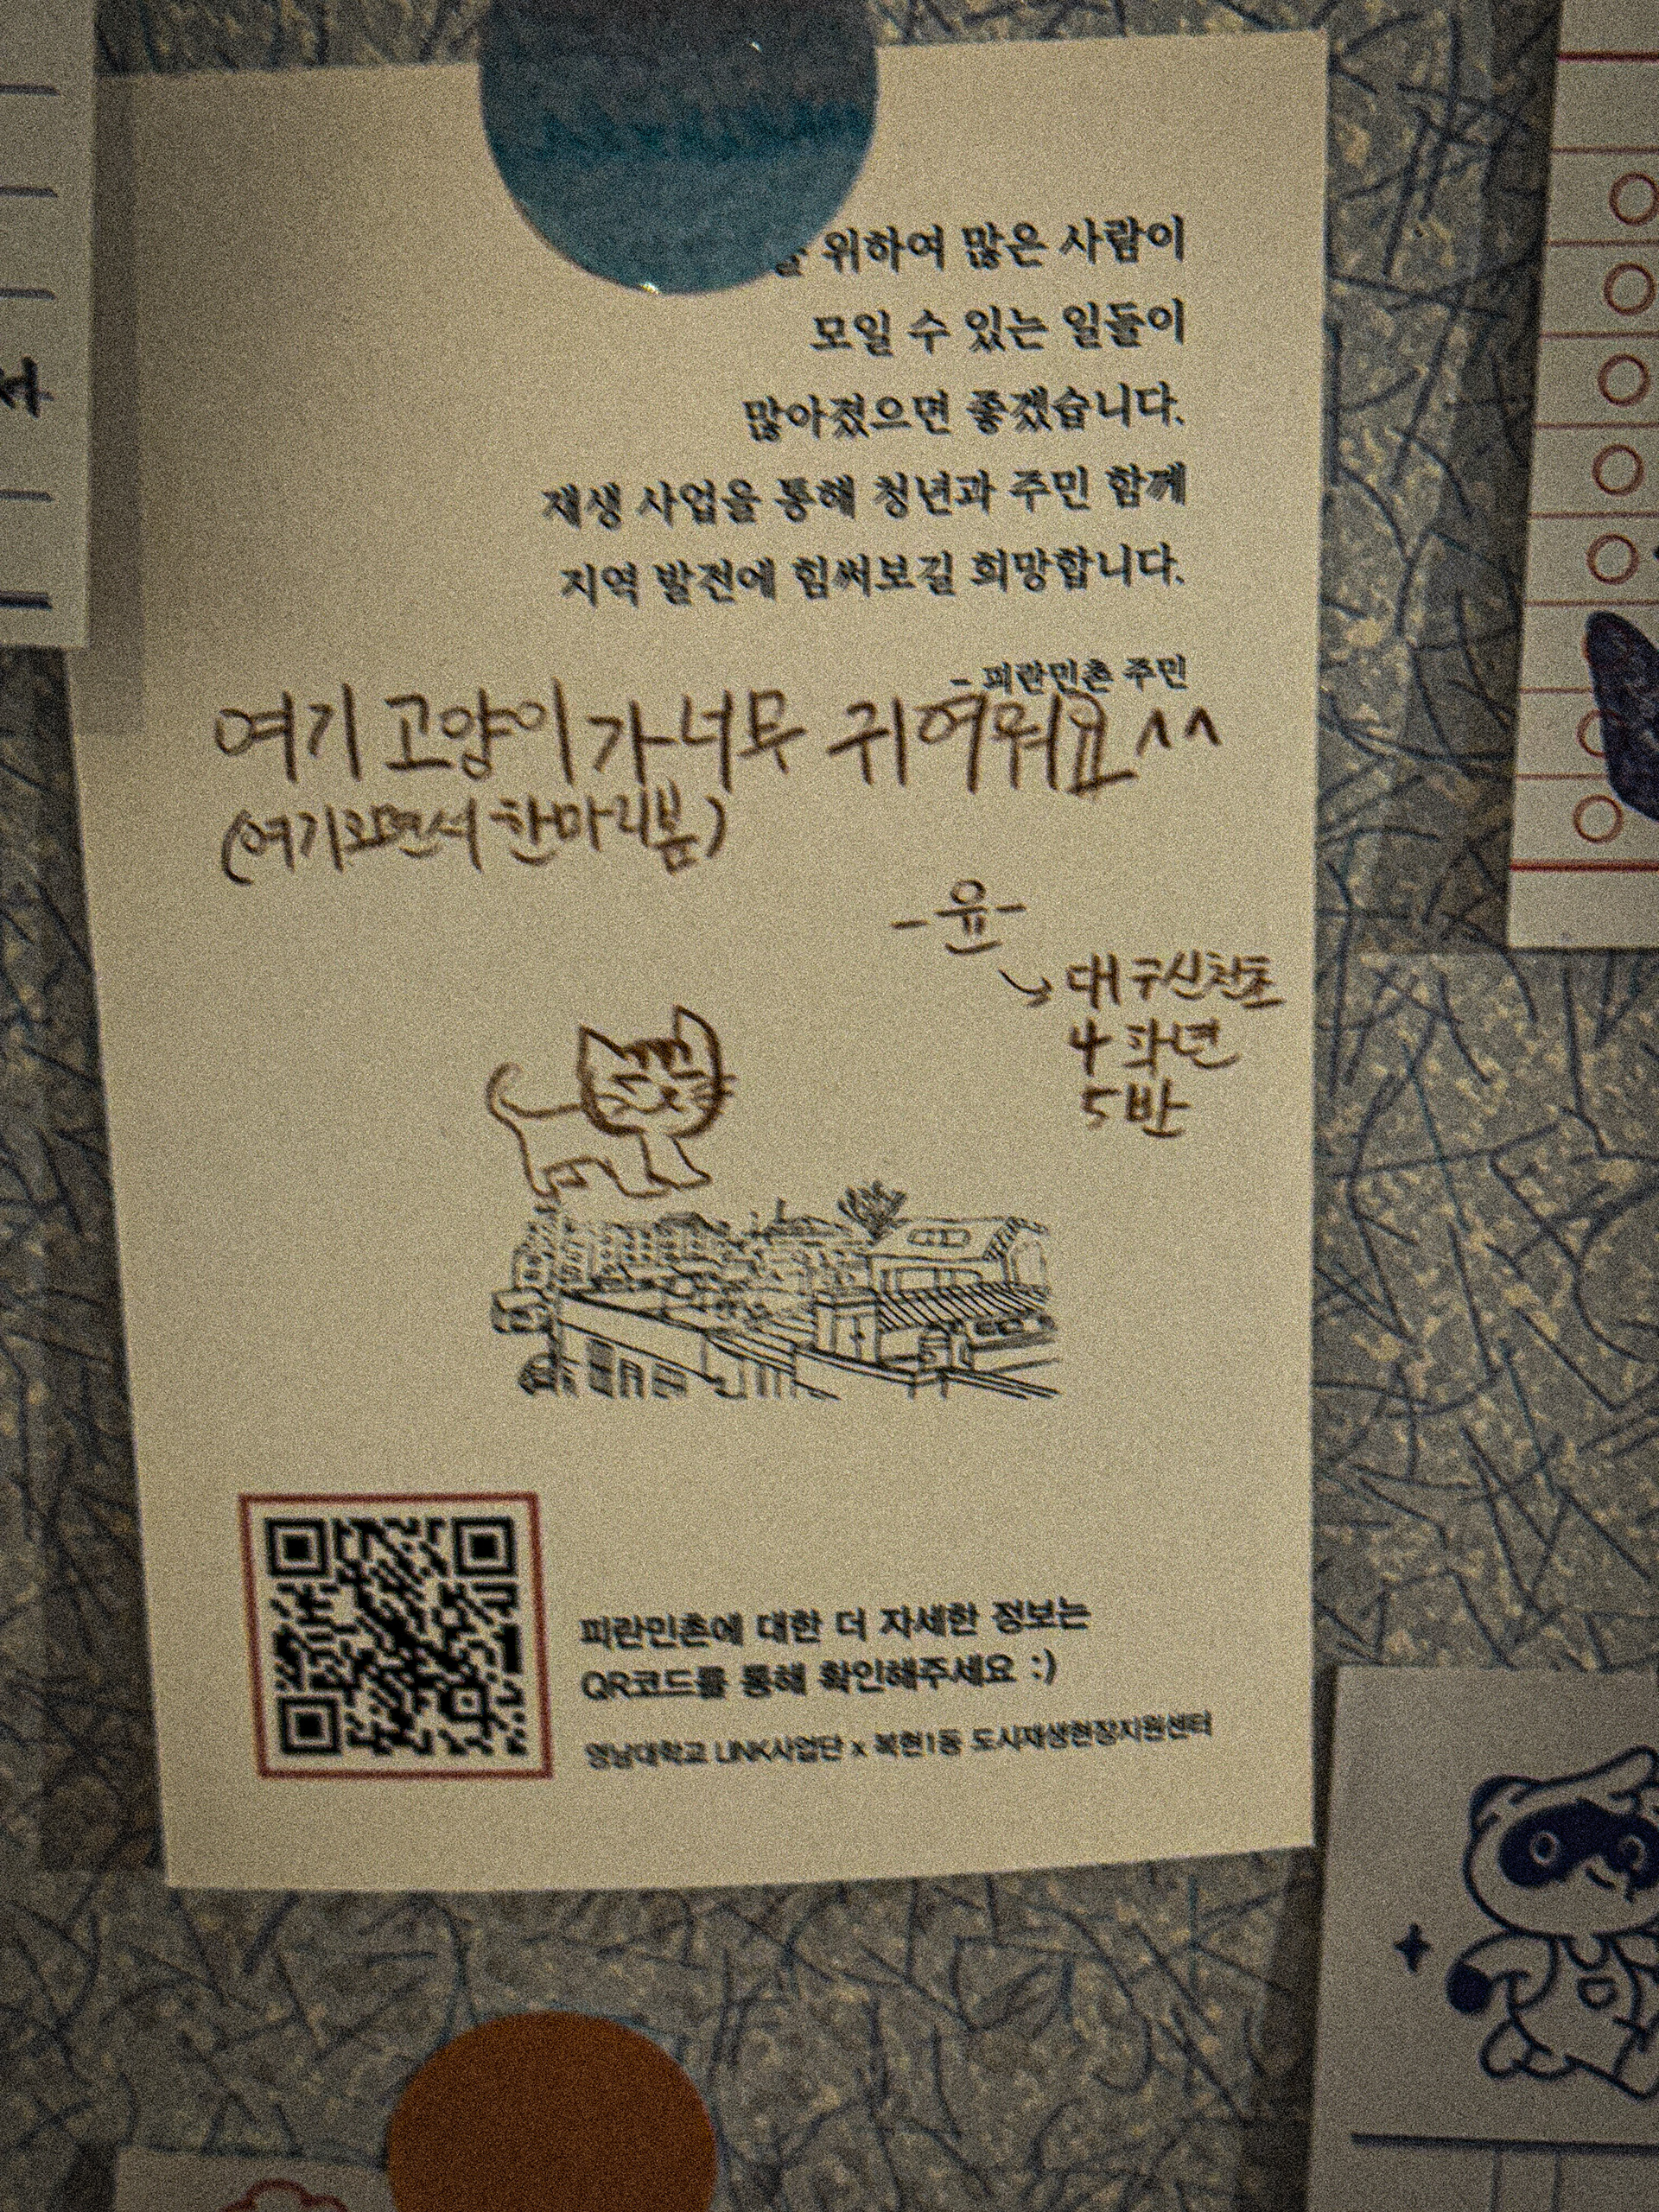 위하여 많은 사람이
모일 수 있는 일들이
많아졌으면 좋겠습니다.
재생 사업을 통해 청년과 주민 함께
지역 발전에 힘써보길 희망합니다.
- 피란민촌 주민
여기 고양이가 너무 귀여워요^^
(여기오면서 한마리봄)
-윤-
↘ 대구신천초
4학년
5반
피란민촌에 대한 더 자세한 정보는
QR코드를 통해 확인해주세요 :)
영남대학교 LINK사업단 x 복현1동 도시재생현장지원센터